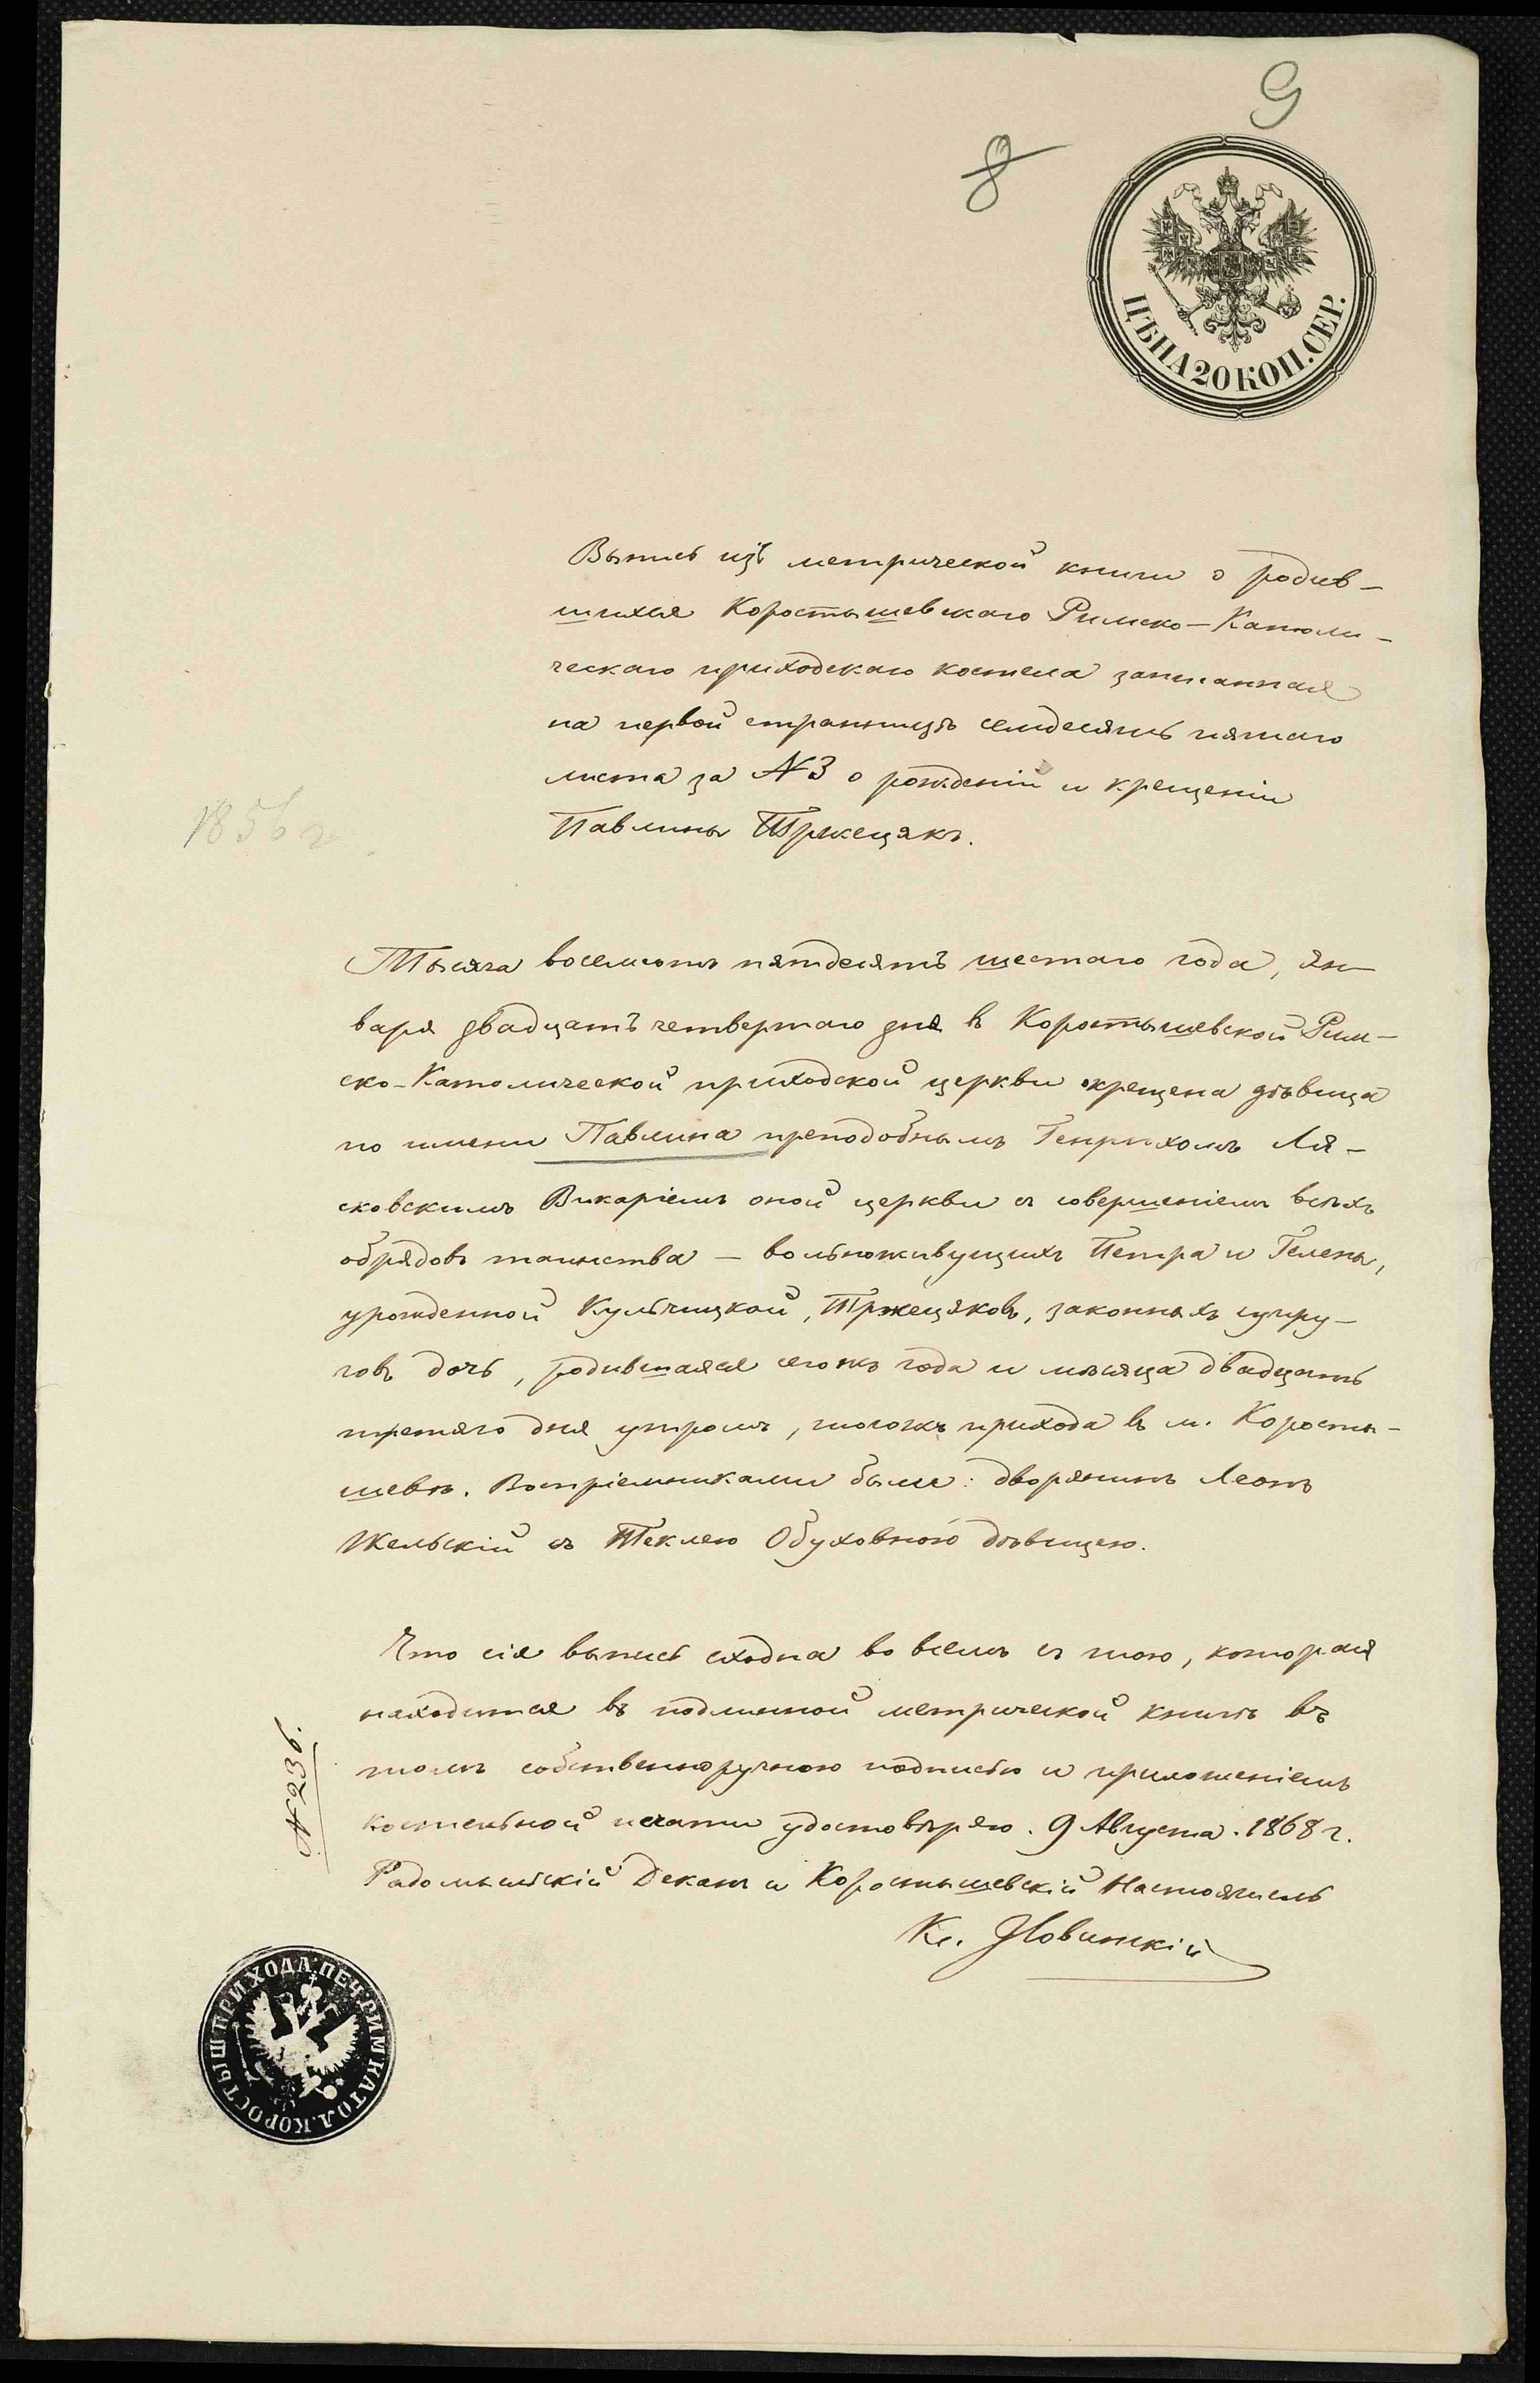 9
8
ЦѢНА 20 КОП. СЕР.
Выпись изъ метрической книги о родив-
шихся Коростышевскаго Римско-Католи-
ческаго приходскаго костела записанная
на первой странницѣ семдесятъ пятаго
листа за №3 о рожденіи и крещеніи
Павлины Тржецякъ.
1856 г
Тысяча восемсотъ пятдесятъ шестаго года, Ян-
варя двадцатъ четвертаго дня въ Коростышевской Рим-
ско-Католической приходской церкви окрещена дѣвица
по имени Павлина преподобнымъ Генрихомъ Ля-
сковскимъ Викаріемъ оной церкви съ совершеніемъ всѣхъ
обрядовъ таинства – вольноживущихъ Петра и Гелены,
урожденной Кульчицкой, Тржецяковъ, законныхъ супру-
говъ дочь, родившаяся сегожъ года и мѣсяца двадцать
третяго дня утромъ, тогожъ прихода въ м. Коросты-
шевѣ. Воспріемниками были: дворянинъ Леонъ
Жельскій съ Теклею Обуховною дѣвицею.
Что сія выпись сходна во всемъ съ тою, которая
находится въ подлинной метрической книгѣ въ
томъ собственноручною подписью и приложеніемъ
костельной печати удостовѣряю. 9 Августа. 1868 г.
№ 236.
Радомысльскій Деканъ и Коростышевскій Настоятель
Кс. Новинскій
ПЕЧ. РИМ. КАТОЛ. КОРОСТЫШ. ПРИХОДА